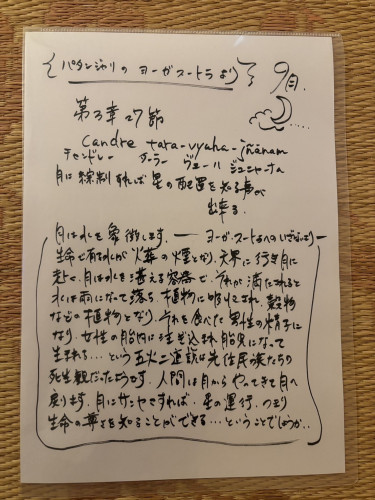 {パタンジャリの ヨーガスートラより} 9月.
第3章27節
candre tara-vyuha-jñānam
チャンドレー ターラー ヴューハ ジュニャーナ
月に綜制すれば星の配置を知る事が
出来る.
月は水を象徴します. ― ヨーガ・スートラへのいざない ―
生命で有る水が火葬の煙となり、天界に行き月に
赴く。月は水を蓄える容器で、それが満たされると
水は雨になって落ち、植物に吸収され、穀物
などの植物となり、それを食べた男性の精子に
なり、女性の胎内に注ぎ込まれ胎児になって
生まれる…という五火二道説は先住民族たちの
死生観だったようです。人間は月からやってきて月へ
戻ります。月にサンヤマすれば、星の運行、つまり
生命の尊さを知ることができる…ということでしょうか..